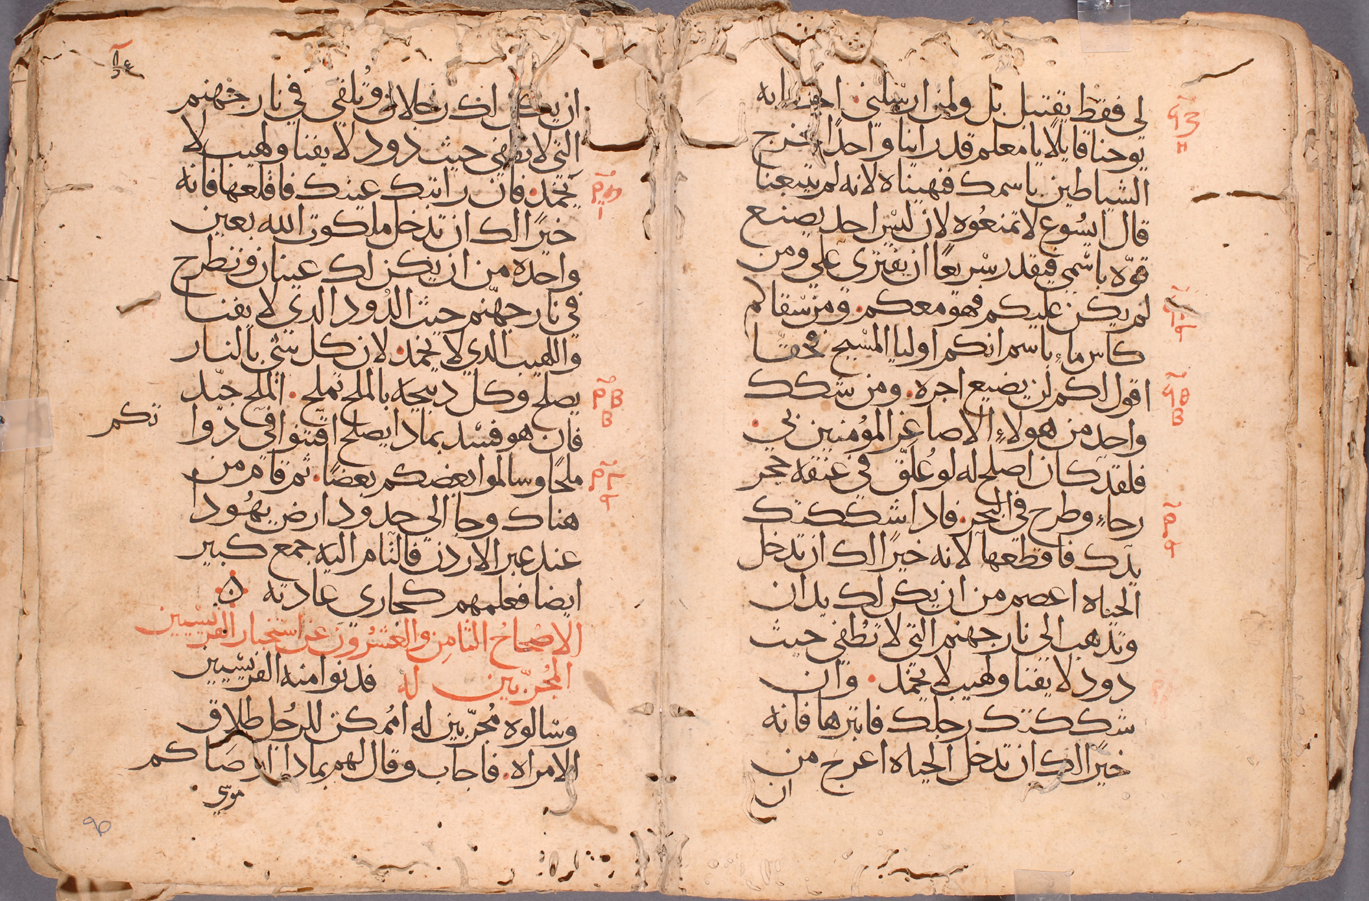 لي فقط يقتبل بل ولمن ارسلني. اجاب ايه
يوحنا قايلا يا معلم قد راينا واحدًا يخرج
الشياطين باسمك فنهيناه لانه لم يتبعنا
قال ايسُوع لا تمنعُوه لان ليس احد يصنع
قوّه باسْمي فيقدر سْريعًا ان يفتري علي ومن
لم يكن عليكم فهو معكم. ومن سْقاكم
كاس ماءٍ باسم انكم اوليا المسْيح فحقا
اقول لكم لن يضيع اجره. ومن شكك
واحد من هولاءِ الاصاغر المؤمنين بي.
فلقد كان اصلح له لو عُلّق في عنقه حجر
رحاءٍ وطرح في البحر. فاذا شككتك
يدك فاقطعها لانه خيرًا لك ان تدخل
الحياه اعصم من ان يكن لك يدان
وتذهب الى نار جهنم التي لا تطفى حيث
دود لا يفنا ولهيب لا يخمد. وان
شككتك رجلك فابترها فانه
خيرًا لك ان تدخل الحياه اعرج من
ان
ان يكن لك رجلان وتُلقى في نار جهنم
التي لا تطفى حيث دود لا يفنا ولهيب لا
يخمد. فان رابتك عينك فاقلعها فانه
خيرًا لك ان تدخل ملكوت الله بعين
واحده من ان يكن لك عينان وتطرح
في نار جهنم حيث الدُود الذي لا يفنا
واللهيب الذي لا يخمد. لان كل شي بالنار
يصلح وكل دبيحه بالملح تملح. الملح جيّد
فان هو فسْد بماذا يصلح اقتنوا في دوا
تكم
ملحًا وسالموا بعضكم بعضًا. ثم قام من
هناك وجا الى حدود ارض يهُودا
عند عبر الاردن فالتام اليه جمع كبير
ايضا فعلمهم كجاري عادته
الاصْحاحُ الثامن والعشرُون عن استخبار الفريسْيين
المُجرّبين له فدنوا منه الفريسْيين
وسالوه مُجرّبين له اممُكن للرجُل طلاق
الامراه. فاجاب وقال لهم بماذا اوصَاكم
موسى